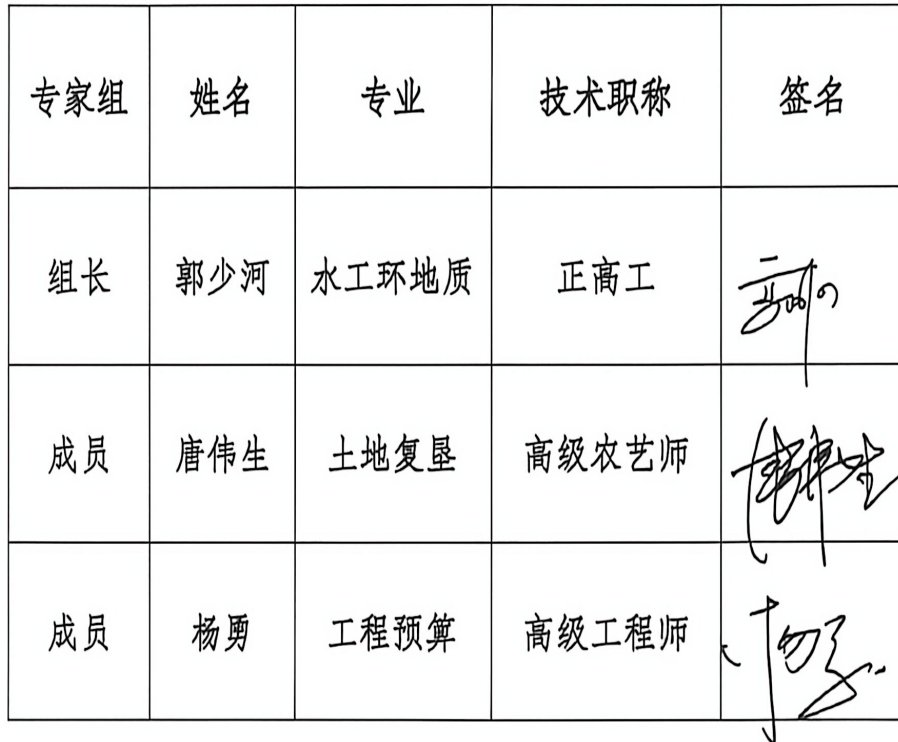 专家组 姓名 专业 技术职称 签名
组长 郭少河 水工环地质 正高工
成员 唐伟生 土地复垦 高级农艺师 唐伟生
成员 杨勇 工程预算 高级工程师 杨勇